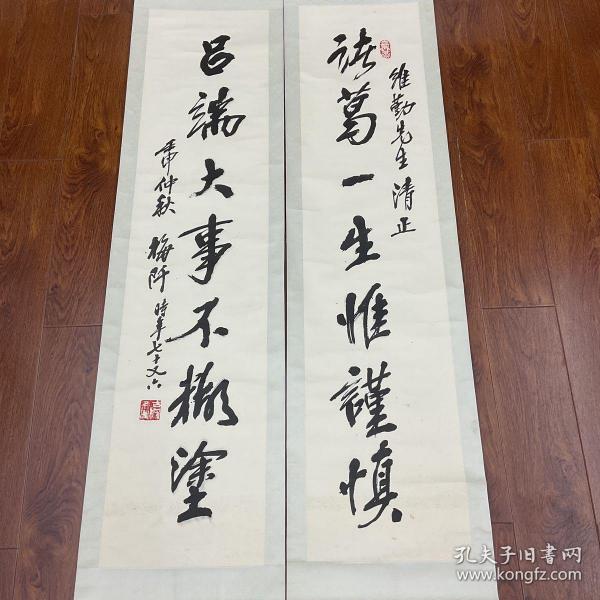 诸葛一生惟謹慎
維勤先生清正
吕端大事不糊塗
仲秋 梅阡 時年七十又六
孔夫子旧書网
www.kongfz.com